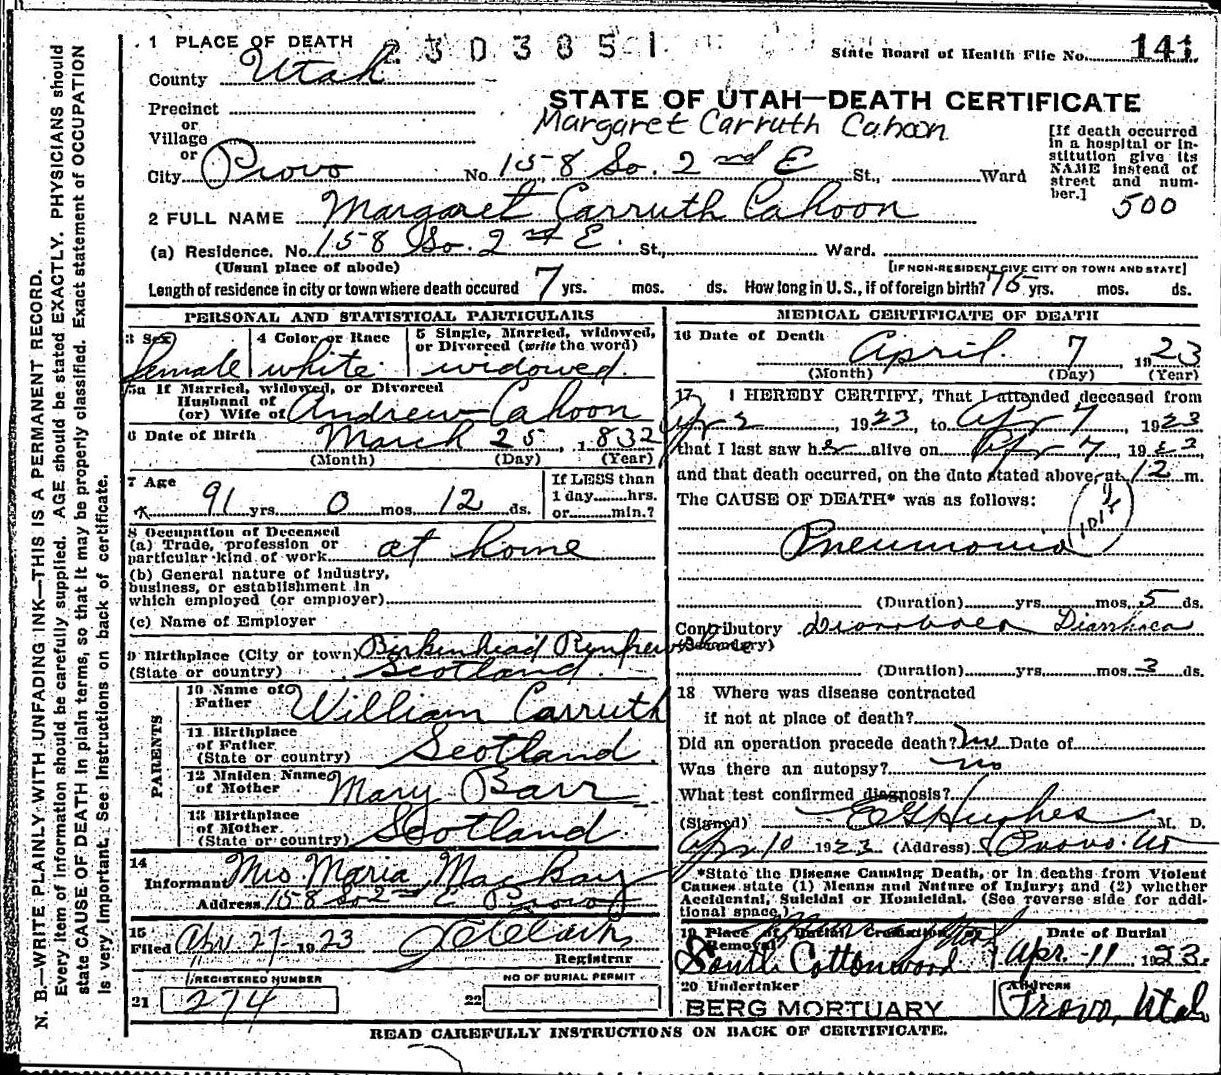 1 PLACE OF DEATH 2303851
State Board of Health File No. 141
County Utah
STATE OF UTAH—DEATH CERTIFICATE
Precinct
or
Village
or
Margaret Carruth Cahoon
City Provo No. 158 So. 2nd E St., Ward
[If death occurred in a hospital or institution give its NAME instead of street and number.]
500
2 FULL NAME Margaret Carruth Cahoon
(a) Residence. No. 158 So. 2nd E. St., Ward.
(Usual place of abode)
[IF NON-RESIDENT GIVE CITY OR TOWN AND STATE]
Length of residence in city or town where death occured 7 yrs. mos. ds. How long in U.S., if of foreign birth? 75 yrs. mos. ds.
PERSONAL AND STATISTICAL PARTICULARS
3 Sex female
4 Color or Race white
5 Single, Married, widowed, or Divorced (write the word) widowed.
5a If Married, widowed, or Divorced
Husband of
(or) Wife of Andrew Cahoon
6 Date of Birth March 25, 1832
(Month) (Day) (Year)
7 Age
91 yrs. 0 mos. 12 ds.
If LESS than
1 day hrs.
or min.?
8 Occupation of Deceased
(a) Trade, profession or
particular kind of work at home
(b) General nature of industry,
business, or establishment in
which employed (or employer)
(c) Name of Employer
9 Birthplace (City or town) Birkenhead Renfrewshire
(State or country) Scotland.
PARENTS
10 Name of
Father William Carruth
11 Birthplace
of Father
(State or country) Scotland.
12 Maiden Name
of Mother Mary Barr
13 Birthplace
of Mother.
(State or country) Scotland.
14
Informant Mrs Maria Mackay
Address 158 So 2nd E Provo
15
Filed Apr 27 1923
Registrar
REGISTERED NUMBER
21 274
NO OF BURIAL PERMIT
22
MEDICAL CERTIFICATE OF DEATH
16 Date of Death April. 7 1923
(Month) (Day) (Year)
17 I HEREBY CERTIFY, That I attended deceased from
Apr 2, 1923, to Apr 7, 1923
that I last saw her alive on Apr 7, 1923
and that death occurred, on the date stated above, at 12 m.
The CAUSE OF DEATH* was as follows:
Pneumonia
(Duration) yrs. mos. 5 ds.
Contributory Diarrhoea Diarrhoea
(Secondary)
(Duration) yrs. mos. 3 ds.
18 Where was disease contracted
if not at place of death?
Did an operation precede death? no Date of
Was there an autopsy? no
What test confirmed diagnosis?
(Signed) E G Hughes M. D.
Apr 10 1923 (Address) Provo. Ut
*State the Disease Causing Death, or in deaths from Violent
Causes state (1) Means and Nature of Injury; and (2) whether
Accidental, Suicidal or Homicidal. (See reverse side for addi-
tional space.)
19 Place of Burial Cremation or Removal
South Cottonwood
Date of Burial
Apr. 11 1923.
20 Undertaker
BERG MORTUARY
Address
Provo, Utah
READ CAREFULLY INSTRUCTIONS ON BACK OF CERTIFICATE.
N. B.—WRITE PLAINLY WITH UNFADING INK—THIS IS A PERMANENT RECORD.
Every item of information should be carefully supplied. AGE should be stated EXACTLY. PHYSICIANS should
state CAUSE OF DEATH in plain terms, so that it may be properly classified. Exact statement of OCCUPATION
is very important. See instructions on back of certificate.